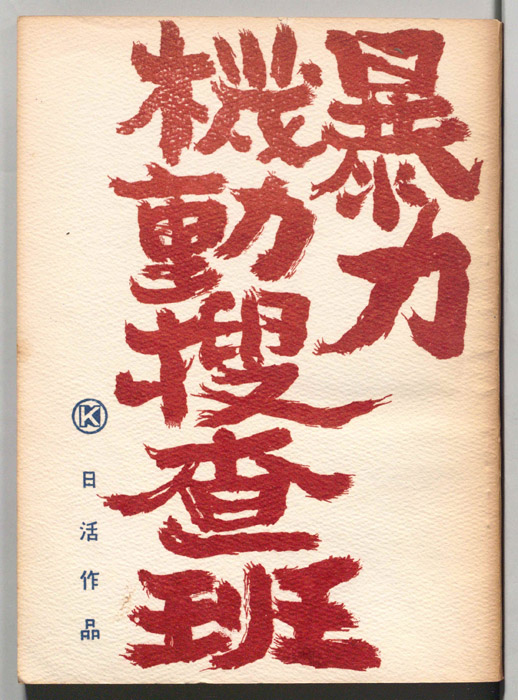 暴力
機動搜査班
K
日活作品